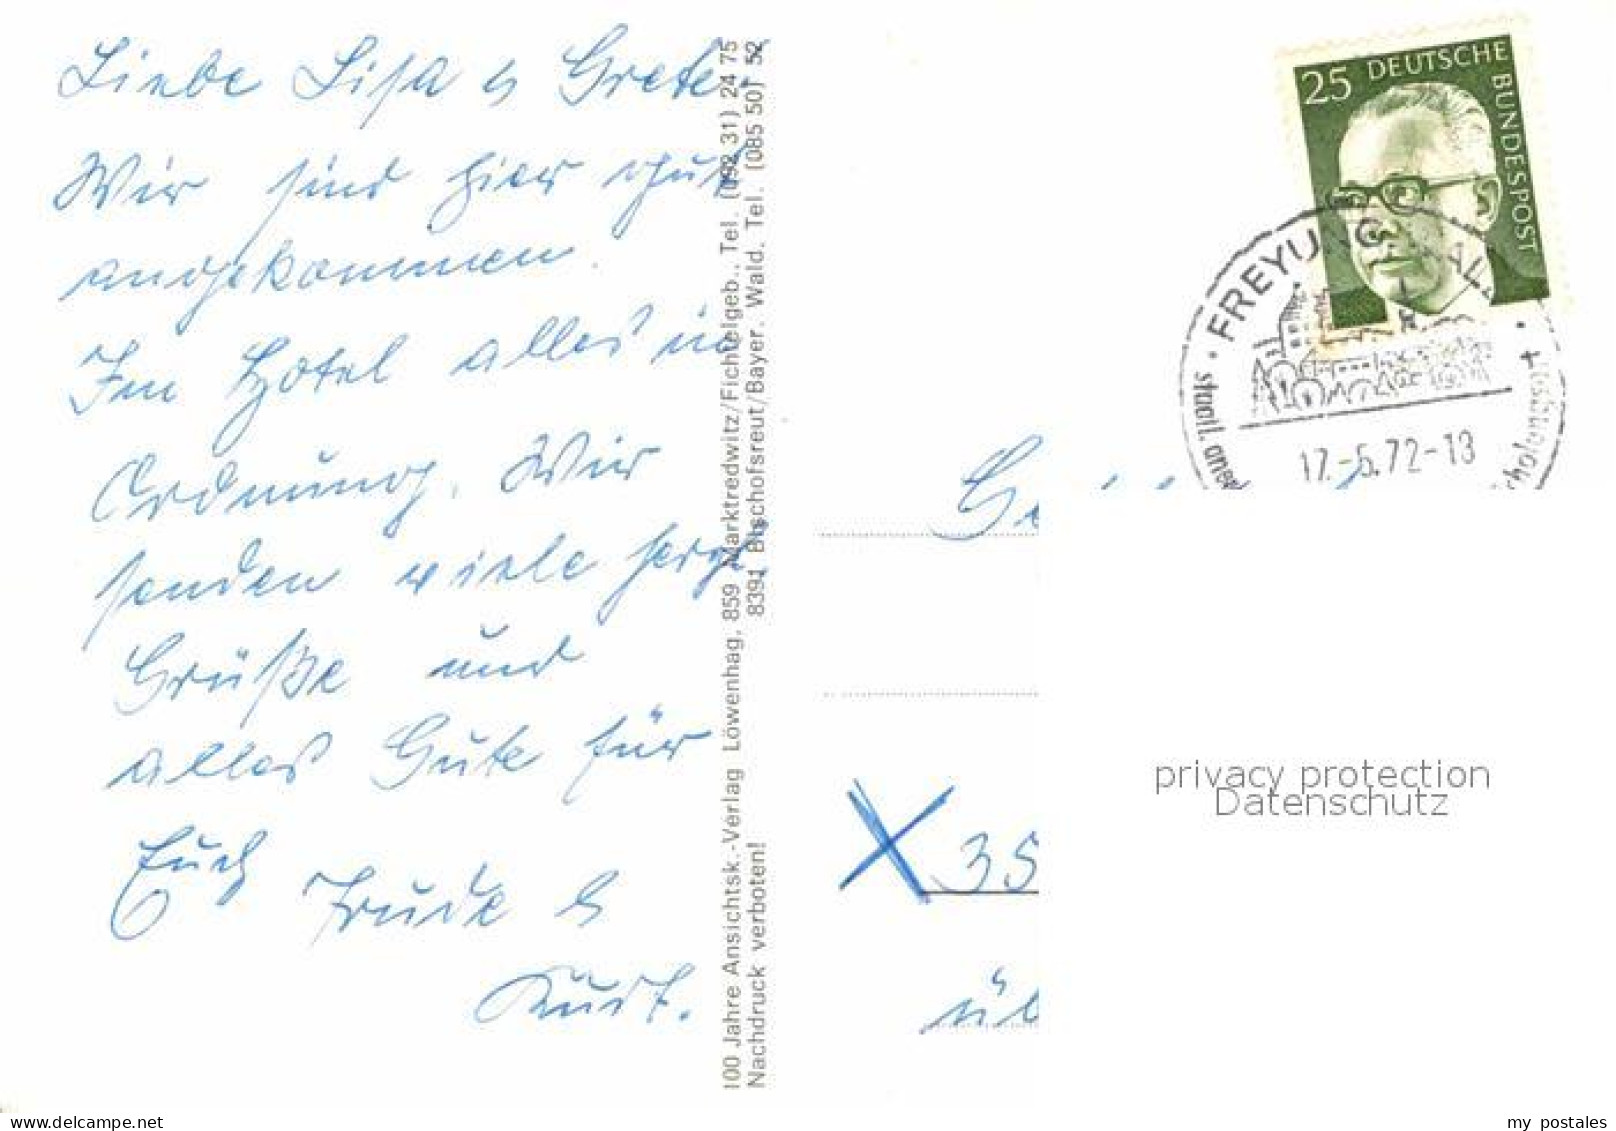 Liebe Lisa & Grete.
Wir sind hier gut
angekommen.
Im Hotel alles in
Ordnung. Wir
senden viele herzl.
Grüße und
alles Gute für
Euch
Trude &
Kurt.
100 Jahre Ansichtsk.-Verlag Löwenhag, 859 Marktredwitz/Fichtelgeb., Tel. (092 31) 24 75
Nachdruck verboten! 8391 Bischofsreut/Bayer. Wald. Tel. (085 50) 52
25 DEUTSCHE
BUNDESPOST
FREYUNG
staatl. aner
17.-5.72-13
35
privacy protection
Datenschutz
delcampe.net
my postales